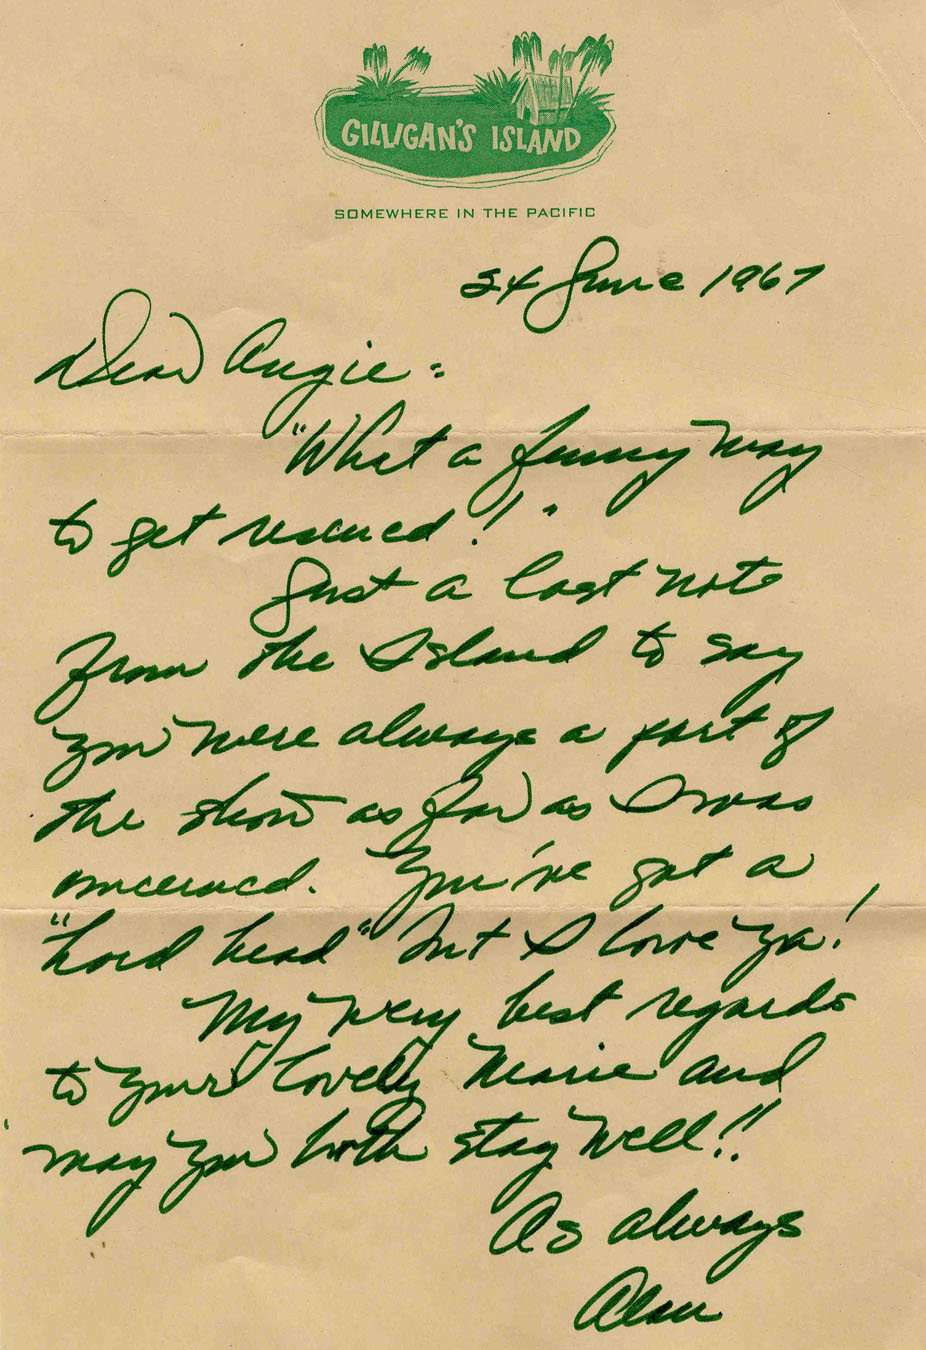 GILLIGAN'S ISLAND
SOMEWHERE IN THE PACIFIC
24 June 1967
Dear Angie:
"What a funny way
to get rescued!"
Just a last note
from the Island to say
you were always a part of
the show as far as I was
concerned. You've got a
"hard head" but I love ya!
My very best regards
to your lovely Marie and
may you both stay well!!
As always
Alan